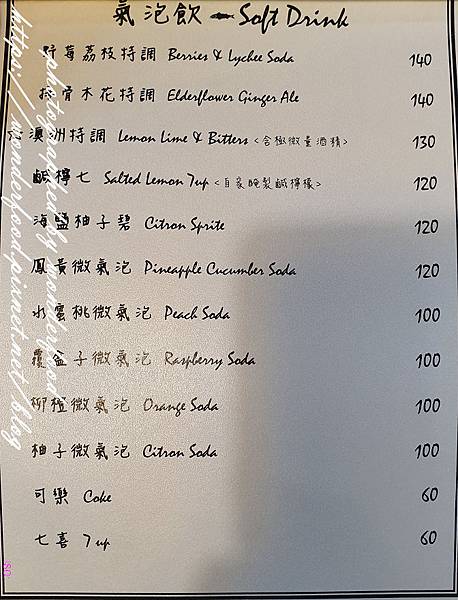 氣泡飲 Soft Drink
莓荔枝特調 Berries & Lychee Soda 140
接骨木花特調 Elderflower Ginger Ale 140
澳洲特調 Lemon Lime & Bitters <含極微量酒精> 130
鹹檸七 Salted Lemon 7up <自家醃製鹹檸檬> 120
海鹽柚子碧 Citron Sprite 120
鳳黃微氣泡 Pineapple Cucumber Soda 120
水蜜桃微氣泡 Peach Soda 100
覆盆子微氣泡 Raspberry Soda 100
柳橙微氣泡 Orange Soda 100
柚子微氣泡 Citron Soda 100
可樂 Coke 60
七喜 7up 60
photographed by wonderfood
https://wonderfood.pixnet.net/blog